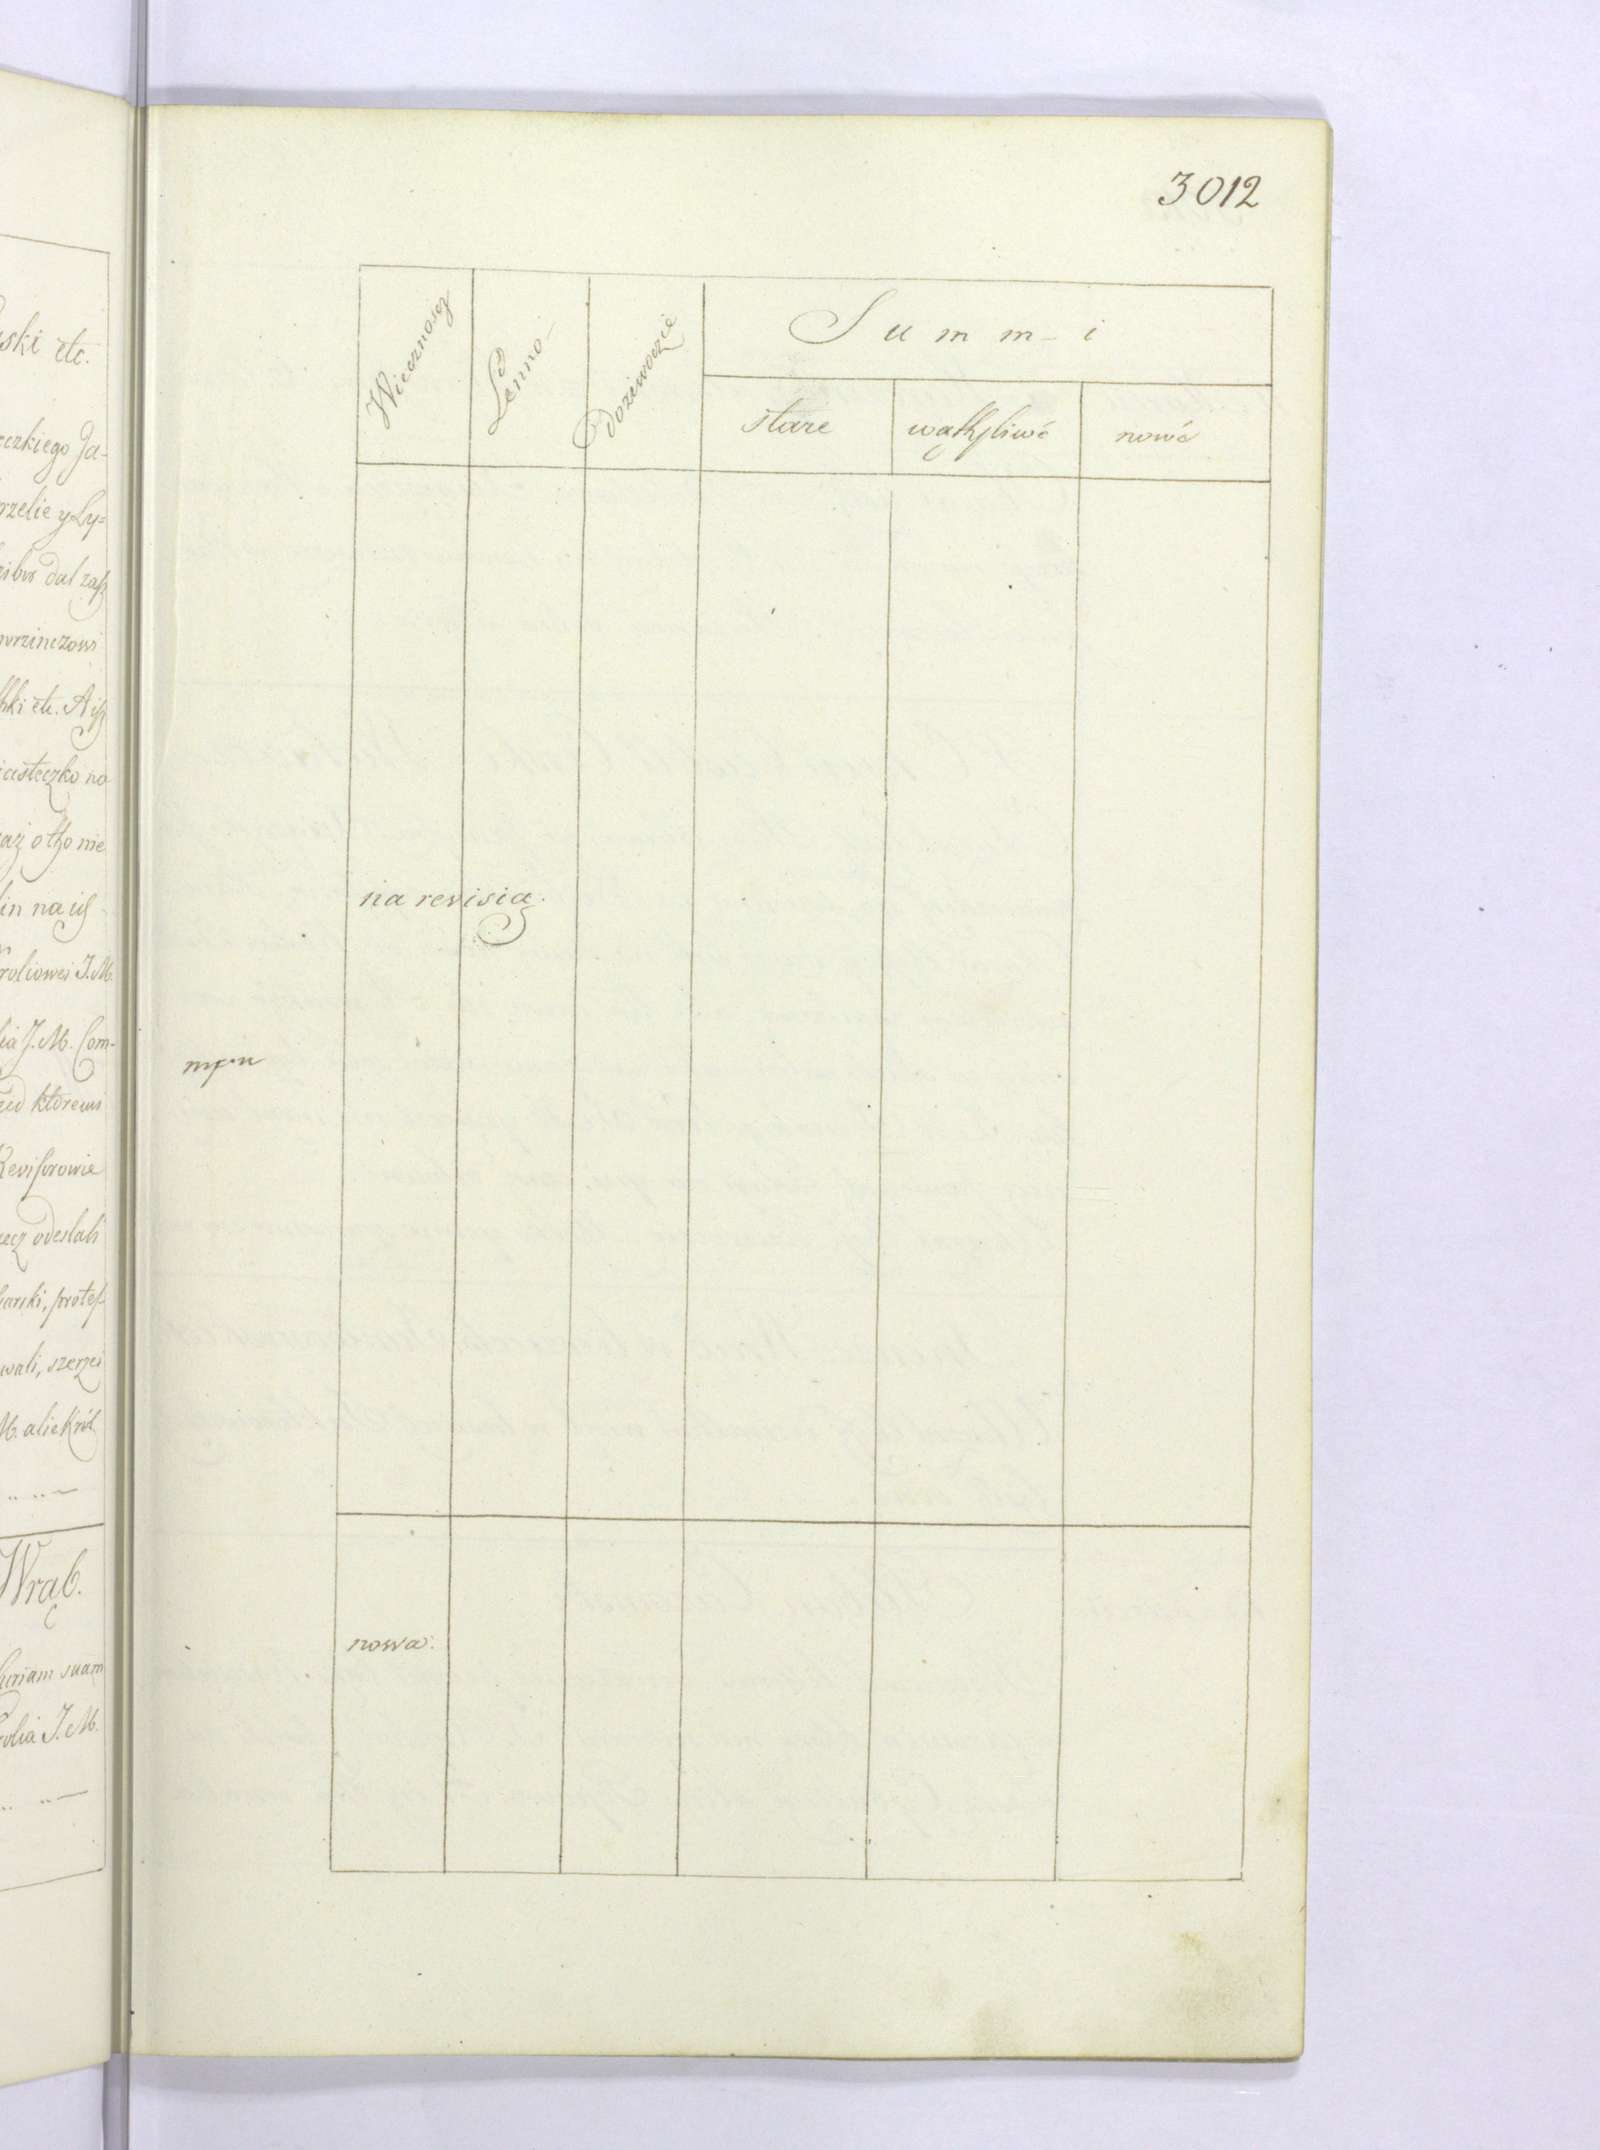 ski etc.
czkiego Ja-
rzelie y Ly-
ribus dal zasz
wrzinczowi
ski etc. A isz
iasteczko na
az o tho nie
lin na ich
roliowei J. M.
lia J. M. Com-
zed ktoremi
Revisorowie
recz odeslali
barski, protes-
wali, szerzei
M. alie Król
Wrąb.
Curiam suam
rolia J. M.
3012
Wiecznoscz
Lenno
Doziwoczie
Summ-i
stare
wąthpliwé
nowé
na revisią.
mpn
nowa: